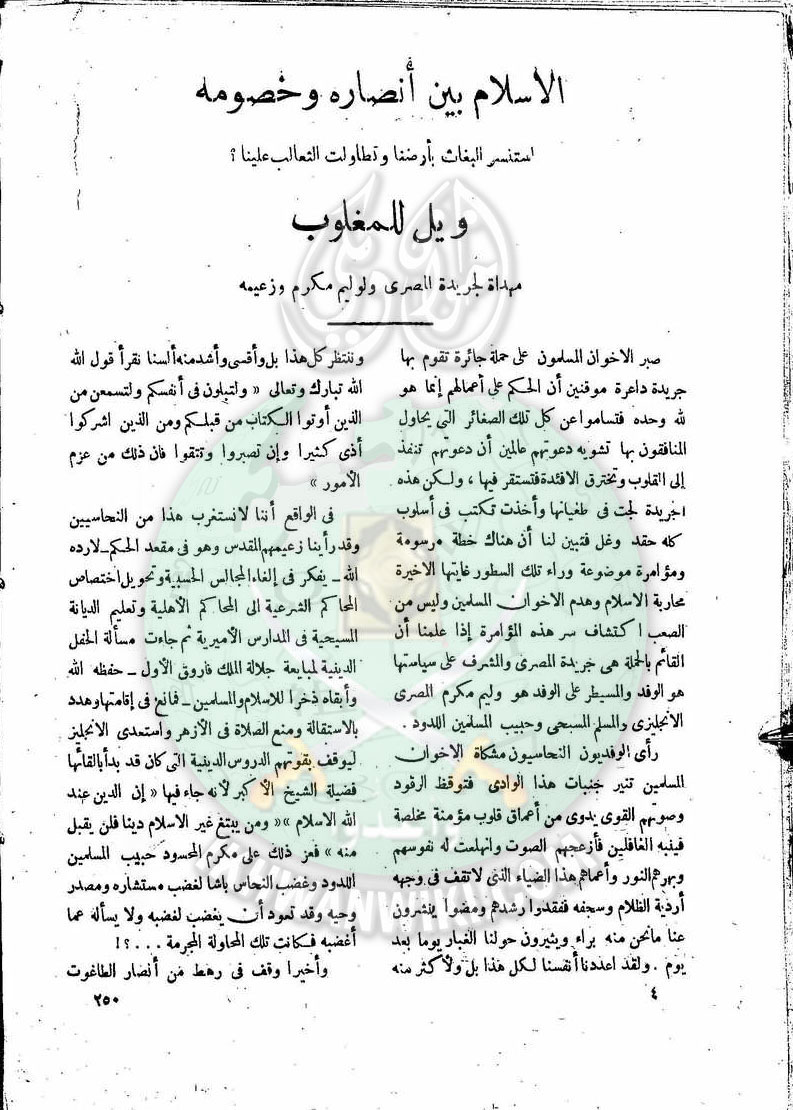 الاسلام بين أنصاره وخصومه
استنسر البغاث بأرضنا وتطاولت الثعالب علينا ؟
ويل للمغلوب
مهداة لجريدة المصرى ولوليم مكرم وزعيمه
صبر الاخوان المسلمون على حملة جائرة تقوم بها
جريدة داعرة موقنين أن الحكم على أعمالهم إنما هو
لله وحده فتساموا عن كل تلك الصغائر التى يحاول
المنافقون بها تشويه دعوتهم عالمين أن دعوتهم تنفذ
إلى القلوب وتخترق الافئدة فتستقر فيها ، ولكن هذه
الجريدة لجت فى طغيانها وأخذت تكتب فى أسلوب
كله حقد وغل فتبين لنا أن هناك خطة مرسومة
ومؤامرة موضوعة وراء تلك السطور غايتها الاخيرة
محاربة الاسلام وهدم الاخوان المسلمين وليس من
الصعب اكتشاف سر هذه المؤامرة إذا علمنا أن
القائم بالحملة هى جريدة المصرى والمشرف على سياستها
هو الوفد والمسيطر على الوفد هو وليم مكرم المصرى
الانجليزى والمسلم المسيحى وحبيب المسلمين اللدود .
رأى الوفديون النحاسيون مشكاة الاخوان
المسلمين تنير جنبات هذا الوادى فتوقظ الرقود
وصوتهم القوى يدوى من أعماق قلوب مؤمنة مخلصة
فينبه الغافلين فأزعجهم الصوت وانهلعت له نفوسهم
وبهرهم النور وأعماهم هذا الضياء الذى لا تقف فى وجهه
أردية الظلام وسجفه ففقدوا رشدهم ومضوا ينشرون
عنا ما نحن منه براء ويثيرون حولنا الغبار يوما بعد
يوم . ولقد اعددنا أنفسنا لكل هذا بل ولأكثر منه
٤
وننتظر كل هذا بل وأقسى وأشد منه ألسنا نقرأ قول الله
الله تبارك وتعالى « ولتبلون فى أنفسكم ولتسمعن من
الذين أوتوا الكتاب من قبلكم ومن الذين اشركوا
أذى كثيرا وإن تصبروا وتتقوا فان ذلك من عزم
الأمور »
فى الواقع أننا لا نستغرب هذا من النحاسيين
وقد رأينا زعيمهم القدس وهو فى مقعد الحكم ــ لا رده
الله ــ يفكر فى إلغاء المجالس الحسبية وتحويل اختصاص
المحاكم الشرعية الى المحاكم الأهلية وتعليم الديانة
المسيحية فى المدارس الأميرية ثم جاءت مسألة الحفل
الدينية لمبايعة جلالة الملك فاروق الأول ــ حفظه الله
وأبقاه ذخرا للاسلام والمسلمين ــ فمانع فى إقامتها وهدد
بالاستقالة ومنع الصلاة فى الأزهر واستعدى الانجليز
ليوقف بقوتهم الدروس الدينية التى كان قد بدأ بالقائها
فضيلة الشيخ الأكبر لأنه جاء فيها « إن الدين عند
الله الاسلام » « ومن يبتغ غير الاسلام دينا فلن يقبل
منه » فعز ذلك على مكرم المحسود حبيب المسلمين
اللدود وغضب النحاس باشا لغضب مستشاره ومصدر
وحيه وقد تعود أن يغضب لغضبه ولا يسأله عما
أغضبه فكانت تلك المحاولة المجرمة . . . ؟ !
وأخيرا وقف فى رهط من أنصار الطاغوت
٢٥٠
IKHWANWIKI.COM